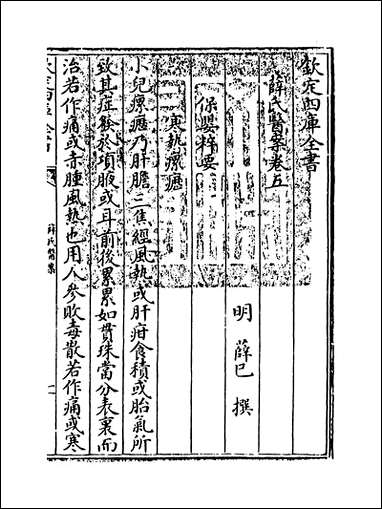 欽定四庫全書
薛氏醫案卷五
明 薛已 撰
保嬰粹要
寒熱瘰癧
小兒瘰癧乃肝膽三焦經風熱或肝疳食積或胎氣所
致其症發於項腋或耳前後累累如貫珠當分表裏而
治若作痛或赤腫風熱也用人參敗毒散若作痛或寒
薛氏醫案